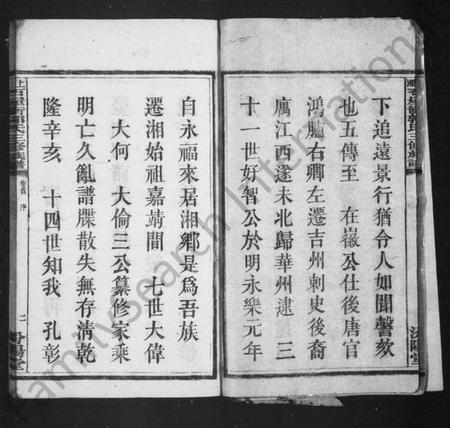 下追遠景行猶令人如聞謦欬
也五傳至 在徽公仕後唐官
鴻臚右卿左遷吉州刺史後裔
廣江西遂未北歸華州逮 三
十一世好智公於明永樂元年
自永福來居湘鄉是爲吾族
遷湘始祖嘉靖間 七世大偉
大何 大倫三公纂修家乘
明亡久亂譜牒散失無存清乾
隆辛亥 十四世知我 孔彰
氏三修族譜
卷首 序
二
堂
FamilySearch International